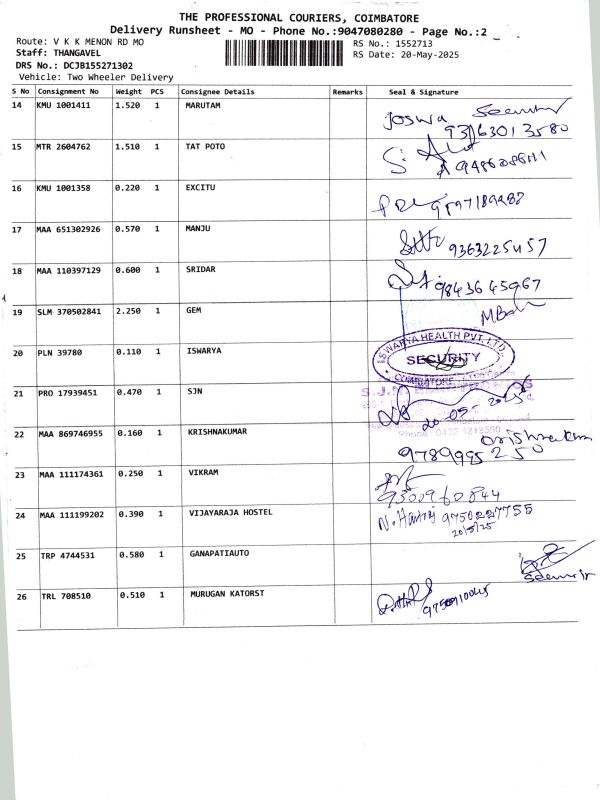 THE PROFESSIONAL COURIERS, COIMBATORE
Delivery Runsheet - MO - Phone No.:9047080280 - Page No.:2
Route: V K K MENON RD MO RS No.: 1552713
Staff: THANGAVEL RS Date: 20-May-2025
DRS No.: DCJB155271302
Vehicle: Two Wheeler Delivery
S No Consignment No Weight PCS Consignee Details Remarks Seal & Signature
14 KMU 1001411 1.520 1 MARUTAM
Joswa
9376301 3580
15 MTR 2604762 1.510 1 TAT POTO
16 KMU 1001358 0.220 1 EXCITU
17 MAA 651302926 0.570 1 MANJU
9363225457
18 MAA 110397129 0.600 1 SRIDAR
9843645967
19 SLM 370502841 2.250 1 GEM
20 PLN 39780 0.110 1 ISWARYA
ISWARYA HEALTH PVT. LTD.
SECURITY
COIMBATORE
21 PRO 17939451 0.470 1 SJN
20-05-2025
22 MAA 869746955 0.160 1 KRISHNAKUMAR
9789995250
23 MAA 111174361 0.250 1 VIKRAM
9500960844
24 MAA 111199202 0.390 1 VIJAYARAJA HOSTEL
9750227755
20/5/25
25 TRP 4744531 0.580 1 GANAPATIAUTO
26 TRL 708510 0.510 1 MURUGAN KATORST